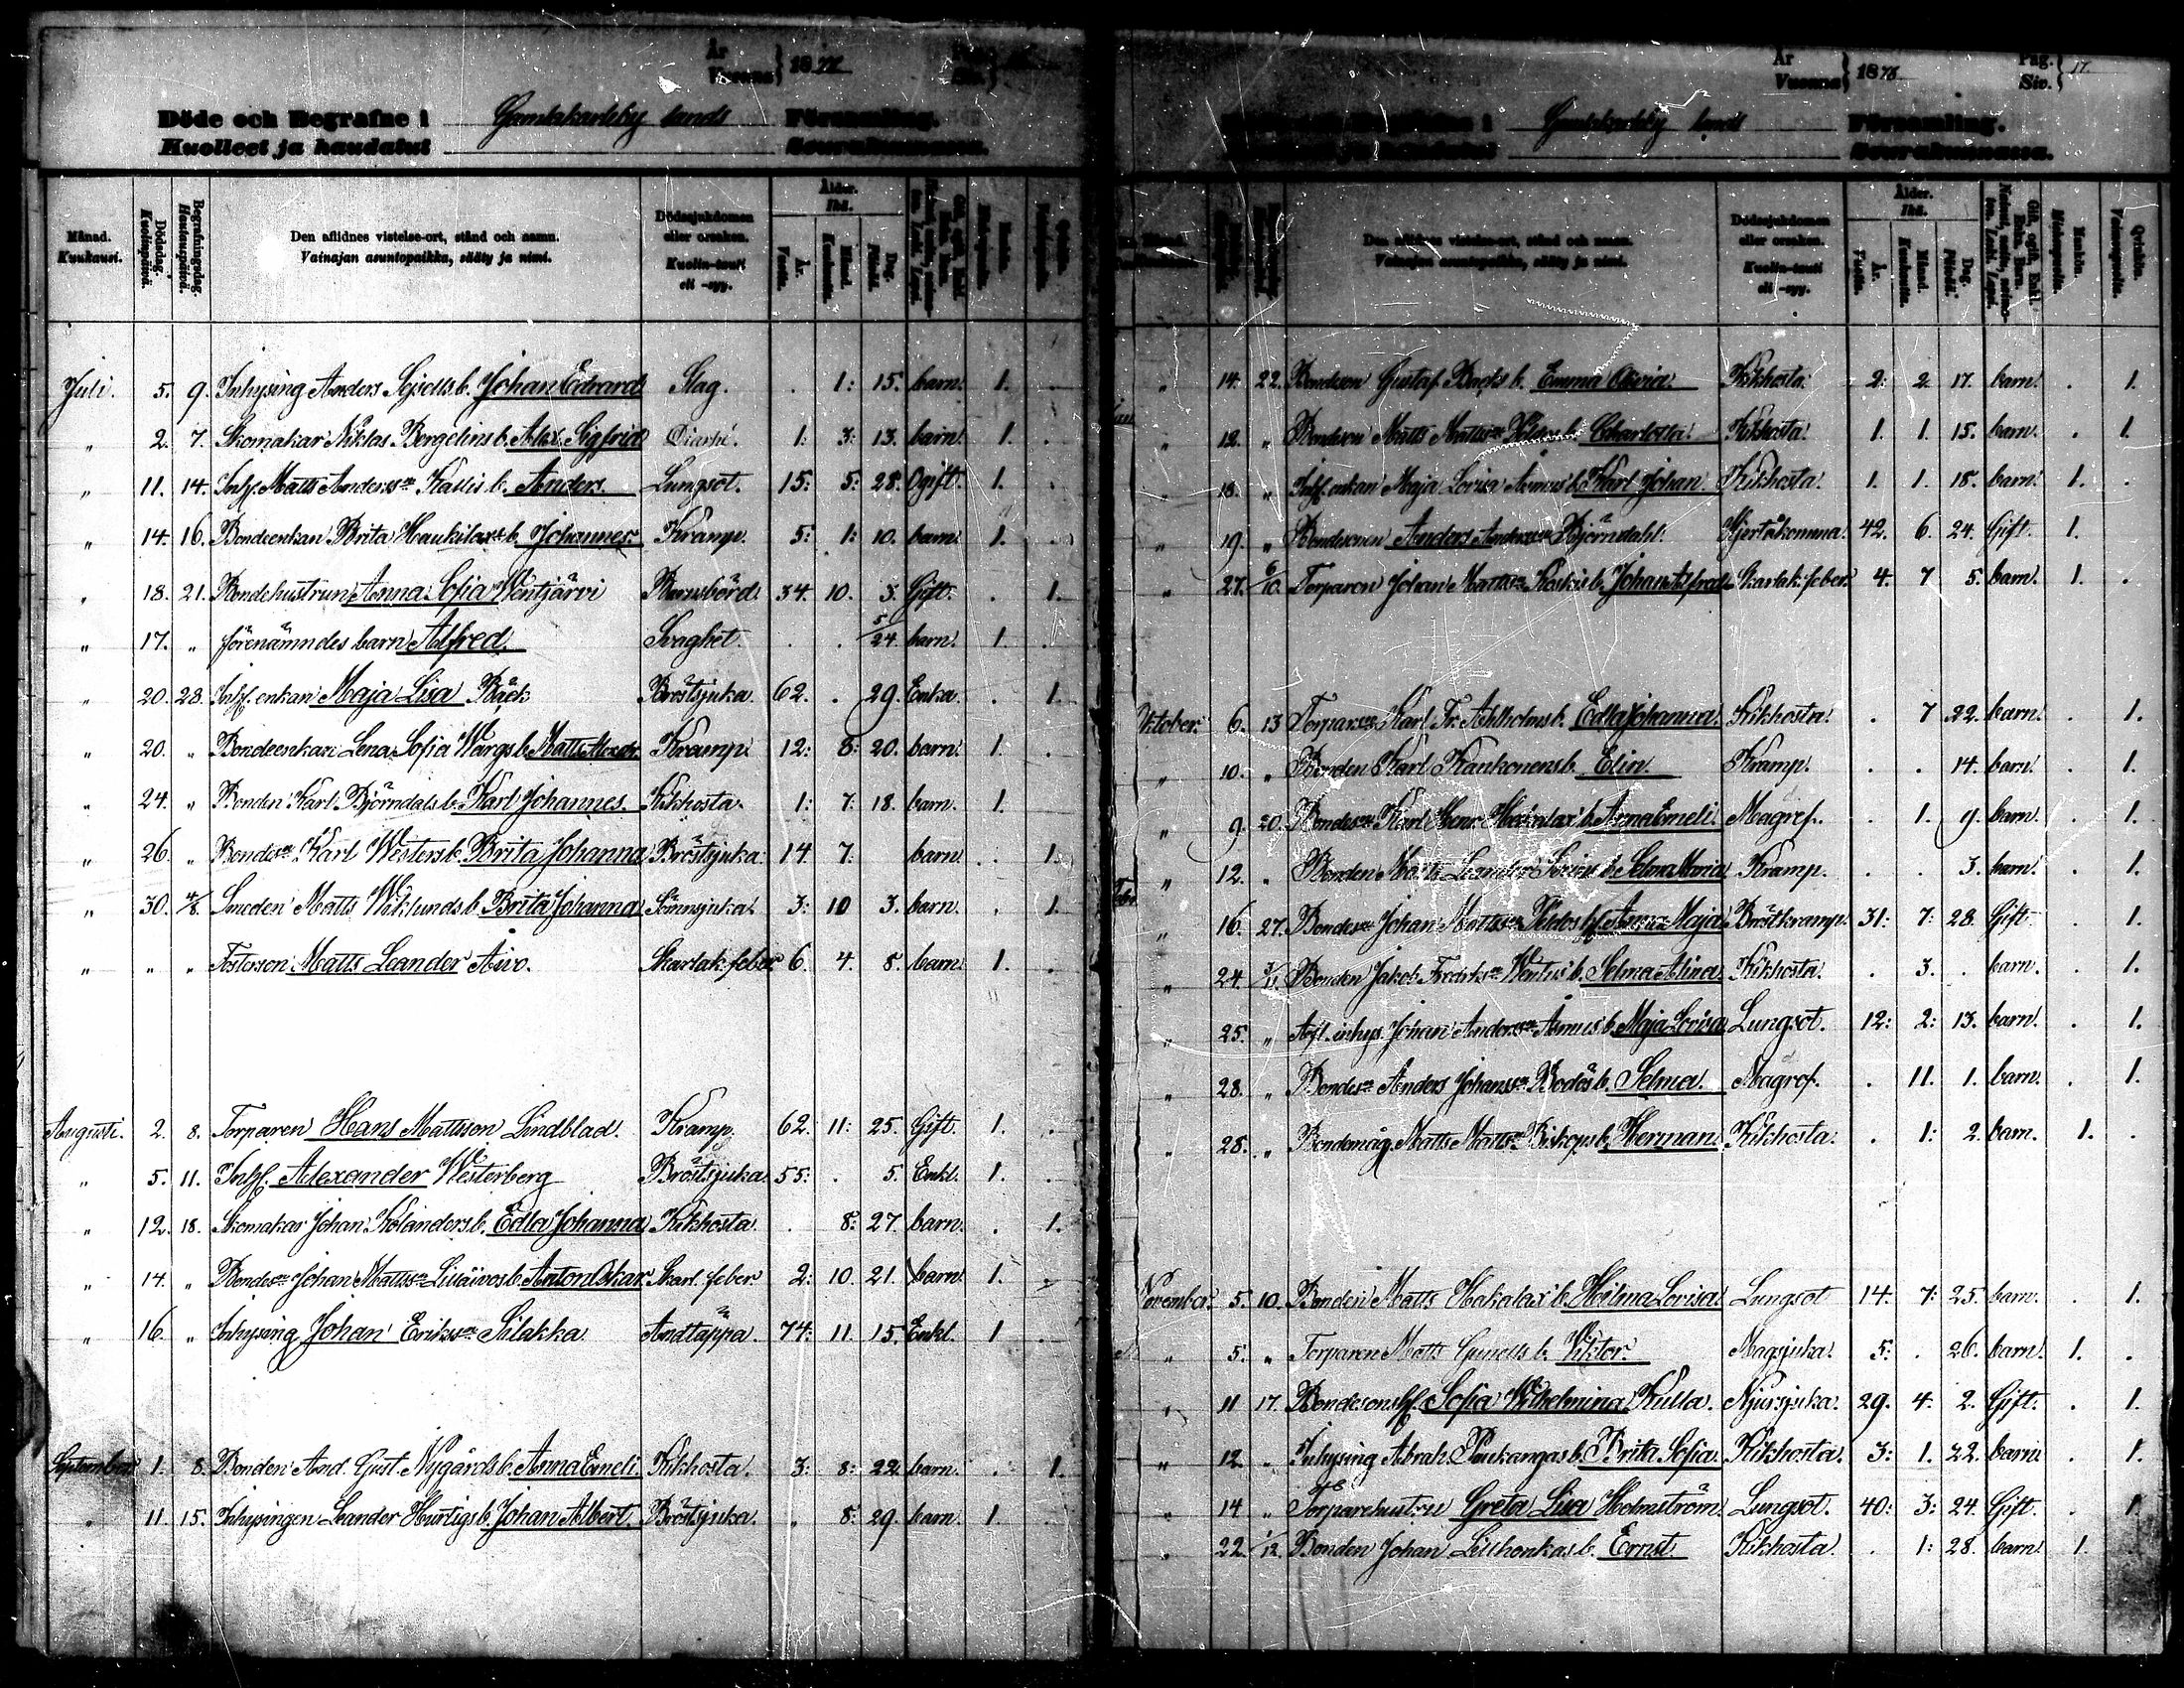 År
Vuosna } 18
Döde och Begrafne i Gamlakarleby lands Församling.
Kuolleet ja haudatut Seurakunnassa.
Månad. Kuukausi. Dödsdag. Kuolinpäivä. Begrafningsdag. Hautauspäivä. Den aflidnes vistelse-ort, stånd och namn. Vainajan asuntopaikka, sääty ja nimi. Dödssjukdomen eller orsaken. Kuolin-tauti eli -syy. Ålder. Ikä. År. Vuotta. Månad. Kuukautta. Dag. Päivää.
Juli. 5. 9. Inhysing Anders b. Johan Edvard Slag. . 1: 15. barn. 1. .
" 2. 7. Skomakar Niklas Bergelins b. Alex. Sigfrid Diarhé. 1: 3: 13. barn. 1. .
" 11. 14. Inh. Matts Anderss. Kallis b. Anders. Lungsot. 15: 5: 28. Ogift. 1. .
" 14. 16. Bondeenkan Brita Haukilax b. Johannes Kramp. 5: 1: 10. barn. 1. .
" 18. 21. Bondehustrun Anna Sofia Wentjärvi Barnsbörd. 34. 10. 3. Gift. . 1.
" 17. " förenämndes barn Alfred. Svaghet. . . 5/24 barn. 1. .
" 20. 28. Inh. enkan Maja Lisa Bäck Bröstsjuka. 62. . 29. Enka. . 1.
" 20. " Bondeenkan Lena Sofia Wargs b. Matts Alexdr. Kramp. 12: 8: 20. barn. 1. .
" 24. " Bonden Karl Björndals b. Karl Johannes. Kikhosta. 1: 7: 18. barn. 1.
" 26. " Bondes. Karl Westers b. Brita Johanna Bröstsjuka. 14. 7: barn. . 1.
" 30. 4/8. Smeden Matts Wiklunds b. Brita Johanna Sömnsjuka. 3: 10 3. barn. . 1.
" " " Fosterson Matts Leander Aivo. Skarlak. feber 6. 4. 8. barn. 1. .
Augusti. 2. 8. Torparen Hans Mattsson Lindblad. Kramp. 62. 11: 25. Gift. 1. .
" 5. 11. Inh. Alexander Westerberg Bröstsjuka. 55: . 5. Enkl. 1. .
" 12. 18. Skomakar Johan Kolanders b. Edla Johanna Kikhosta. . 8: 27. barn. . 1.
" 14. " Bondes. Johan Matts. Lisäivos b. Anton Oskar Skarl. feber 2: 10. 21. barn. 1. .
" 16. " Inhysing Johan Eriks. Silakka Andtäppa. 74: 11. 15. Enkl. 1 .
September 1. 8. Bonden And. Gust. Nygårds b. Anna Emeli Kikhosta. 3: 8: 22. barn. . 1.
" 11. 15. Inhysingen Leander Hurtigs b. Johan Albert. Bröstsjuka. " 8: 29. barn. 1.
År
Vuonna } 1878 Pag. Siv. } 17.
Gamlakarleby lands Församling.
Seurakunnassa.
Den aflidnes vistelse-ort, stånd och namn. Vainajan asuntopaikka, sääty ja nimi. Dödssjukdomen eller orsaken. Kuolin-tauti eli -syy. Ålder. Ikä. År. Vuotta. Månad. Kuukautta. Dag. Päivää. Mankön. Miehenpuolta. Qvinkön. Vaimonpuolta.
" 14. 22. Bondson Gustaf Backs b. Emma Olivia. Kikhosta. 2: 2. 17. barn. . 1.
" 12. " Bondeson Matts Matts. b. Charlotta. Kikhosta. 1. 1. 15. barn. . 1.
" 18. " Inh. enkan Maja Lovisa Asmus b. Karl Johan. Kikhosta. 1. 1. 18. barn. 1. .
" 19. " Bondsonen Anders Anderss. Björndahl. Hjertåkomma. 42. 6. 24. Gift. 1.
" 27. 6/10. Torparen Johan Matts. Koskis b. Johan Alfred Skarlak. feber. 4. 7 5. barn. 1. .
Oktober 6. 13 Torpars. Karl Fr. Ahlholms b. Edla Johanna. Kikhosta. . 7 22. barn. . 1.
" 10. " Bonden Karl Kankonens b. Elin. Kramp. . . 14. barn. . 1.
" 9. 20. Bondes. Karl Henr. b. Anna Emeli. Magref. . 1. 9. barn. . 1.
" 12. " Bonden Matts Leander b. Selma Maria Kramp. . . 3. barn. . 1.
" 16. 27. Bondes. Johan Matts. h. Anna Maja Bröstkramp. 31: 7: 28. Gift. . 1.
" 24. 3/11. Bonden Jakob Fredriks. b. Selma Alina. Kikhosta. . 3. . barn. . 1.
" 25. " Afl. inhys. Johan Anders. Asmus b. Maja Lovisa Lungsot. 12: 2: 13. barn. . 1.
" 28. " Bondes. Anders Johans. Bodös b. Selma. Magref. . 11. 1. barn. . 1.
" 28. " Bondemåg Matts Matts. Biskops b. Herman. Kikhosta. . 1: 2. barn. 1. .
November. 5. 10. Bonden Matts Hakalax b. Hilma Lovisa. Lungsot 14. 7: 25. barn. . 1.
" 5. " Torparen Matts Gunells b. Viktor. Magsjuka. 5: . 26. barn. 1. .
" 11 17. Bondesonsh. Sofia Wilhelmina Kulla. Njursjuka. 29. 4. 2. Gift. . 1.
" 12. " Inhysing Abrah. Puukangas b. Brita Sofia. Kikhosta. 3: 1. 22. barn. . 1.
" 14 " Torparehustru Greta Lisa Holmström. Lungsot. 40: 3: 24. Gift. . 1
" 22. 1/12. Bonden Johan Lillhonkas b. Ernst. Kikhosta. . 1: 28. barn. 1.